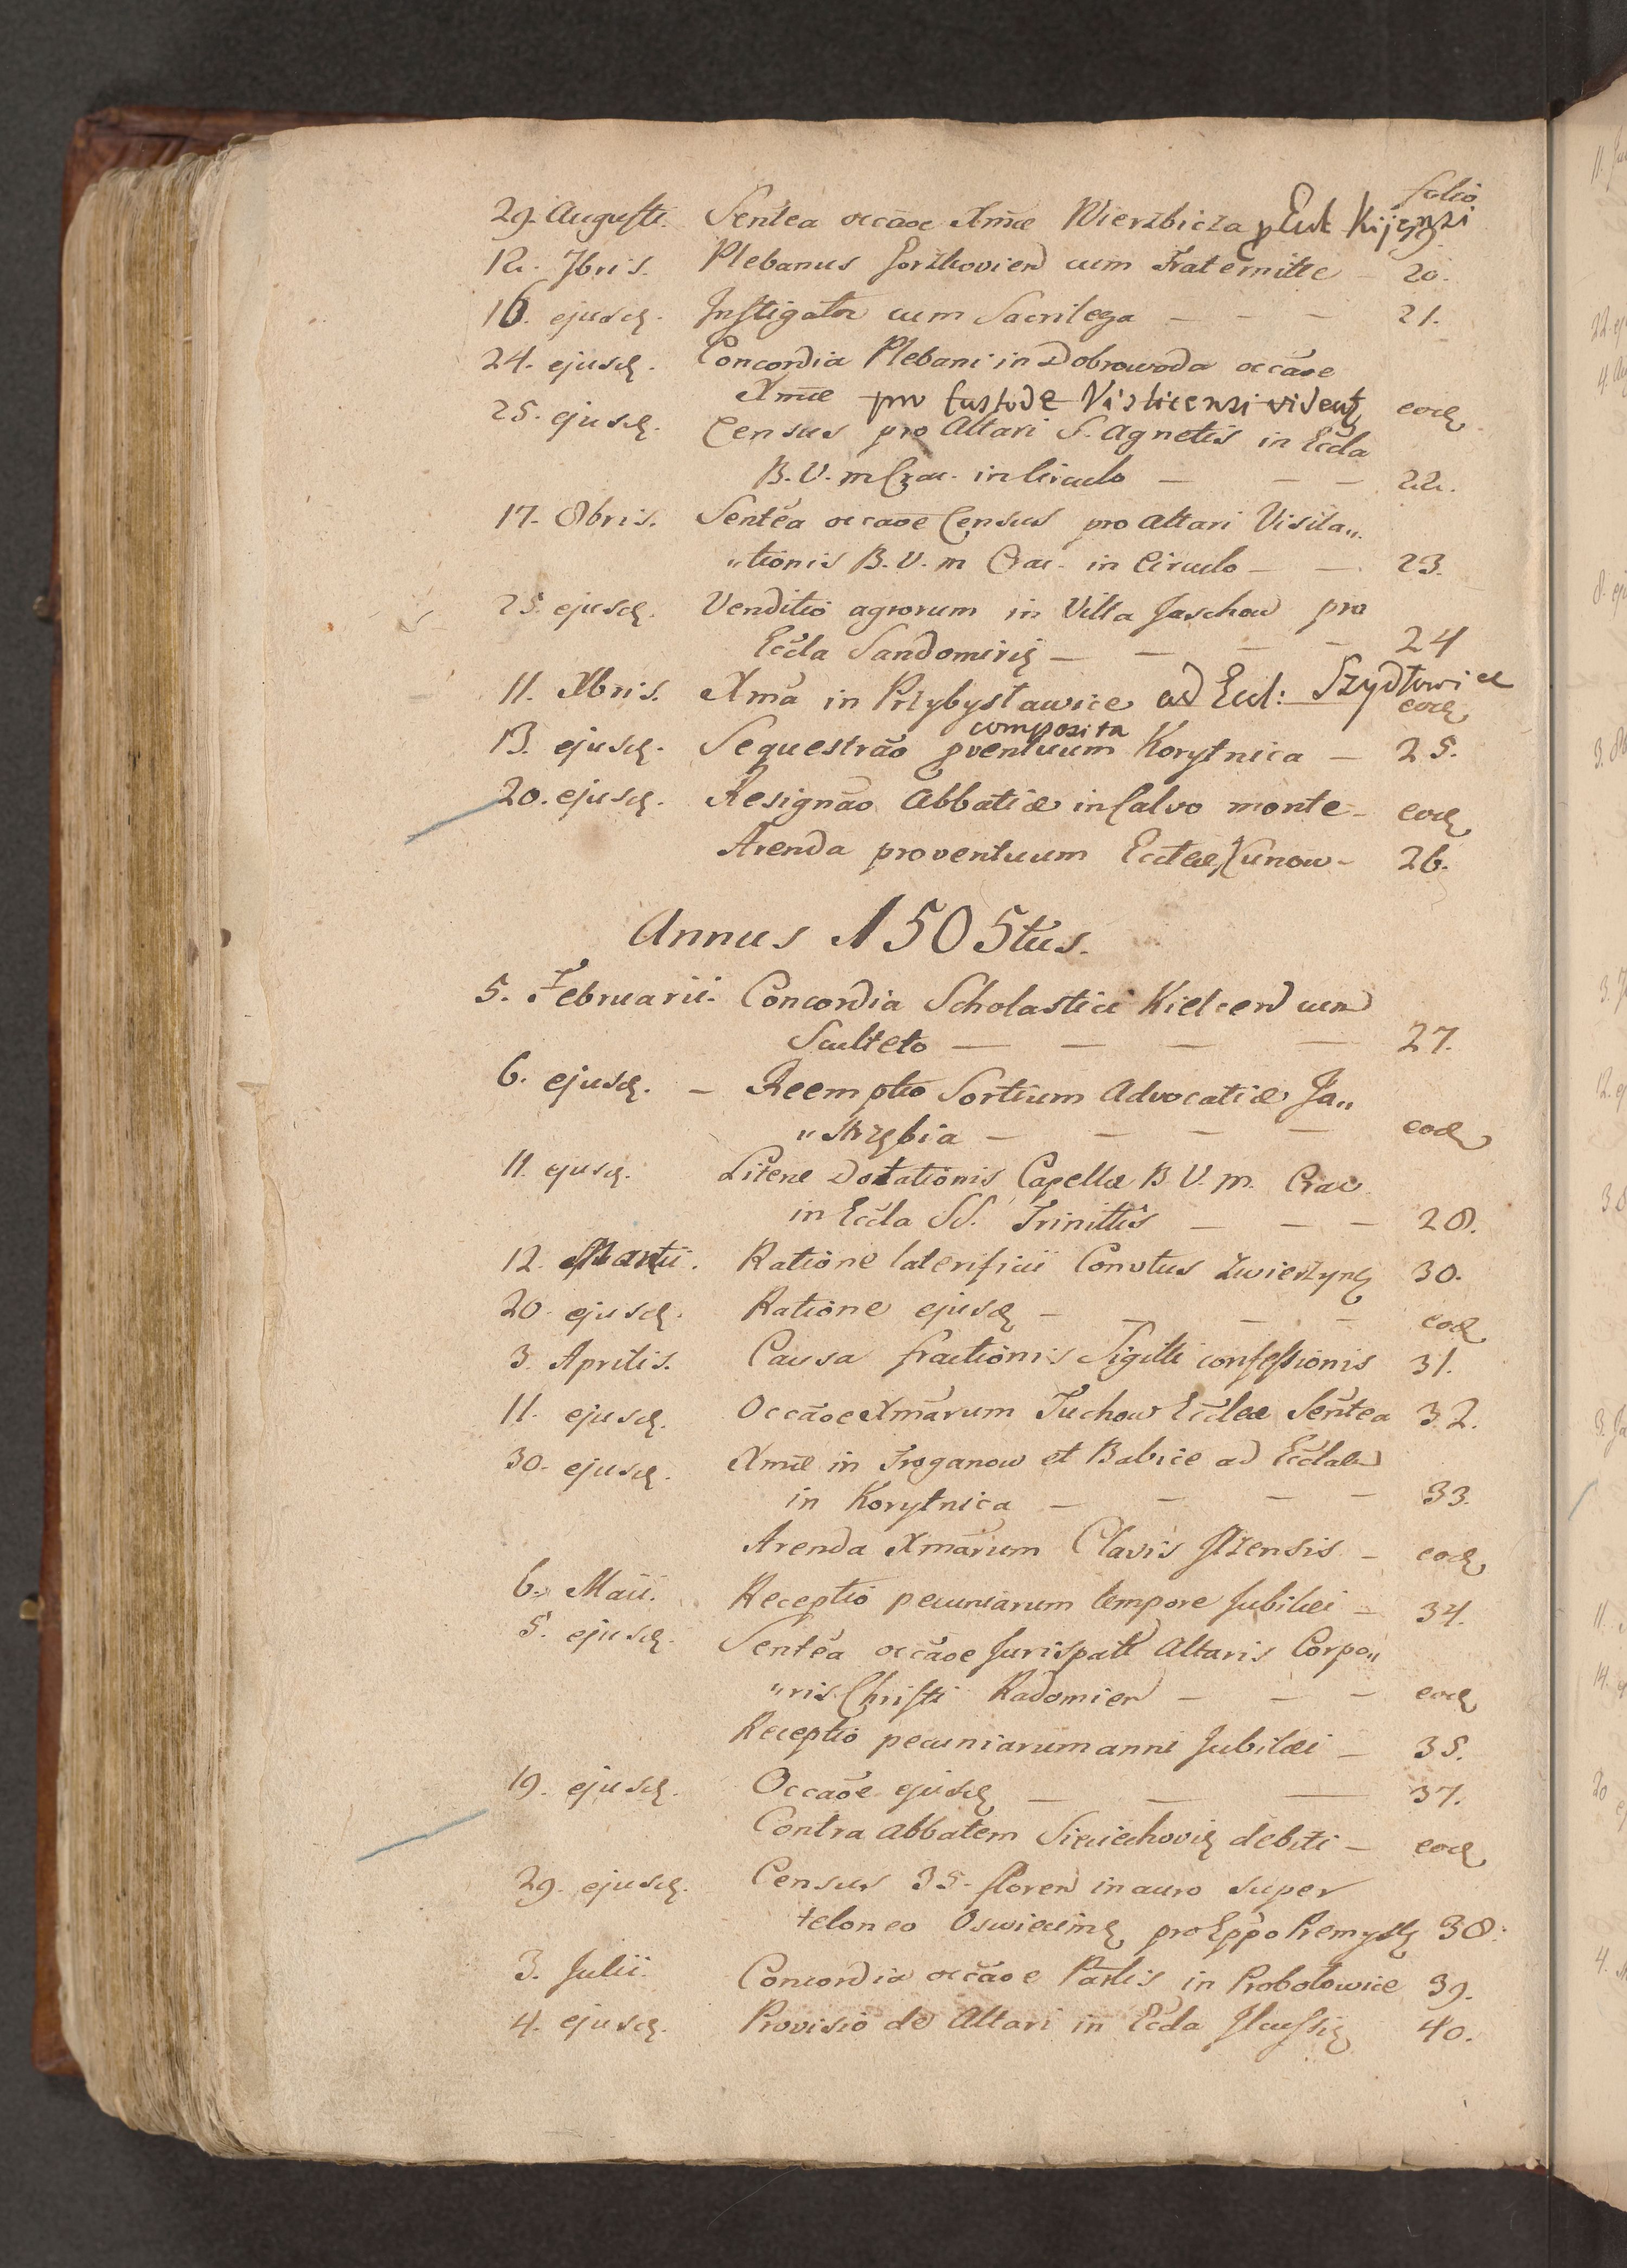 folio
29. Augusti. Sentea occaoe Xmae Wierzbicza p Eccl Kijensi 19.
12. 7bris. Plebanus Gorzkovien cum Fraternitte - 20.
16. ejusd. Instigator cum Sacrilega - - - 21.
24. ejusd. Concordia Plebani in Dobrowoda occaoe
Xmae pro Custode Visticensi vident eod
25. ejusd. Census pro Altari S. Agnetis in Eccla
B. V. M Crac. in Circulo - - - 22.
17. 8bris. Sentea occaoe Census pro altari Visita„
„tionis B. V. M Crac. in Circulo - - 23.
25. ejusd. Venditio agrorum in Villa Jaschow pro
Eccla Sandomirien - - - 24
11. Xbris. Xma in Przybysławice ad Eccl: Szydłowice eod
composita
13. ejusd. Sequestrao pventuum Korytnica - 25.
20. ejusd. Resignao Abbatiae in Calvo monte - eod
Arenda proventuum Ecclae Kunow - 26.
Annus 1505tus.
5. Februarii. Concordia Scholastici Kielcen cum
Sculteto - - - - 27.
6. ejusd. - Reemptio Sortium Advocatiae Ja„
„strzębia - - - - eod
11. ejusd. Literae Dotationis Capellae B. V. M. Crac
in Eccla SS. Trinittis - - - 28.
12. Martii. Ratione laterificii Convtus Zwierzyn 30.
20. ejusd. Ratione ejusd - - - - eod
3. Aprilis. Causa fractionis Sigilli confessionis 31.
11. ejusd. Occaoe Xmarum Tuchow Ecclae Sentea 32.
30. ejusd. Xmae in Troganow et Babice ad Ecclam
in Korytnica - - - - 33.
Arenda Xmarum Clavis Ilzensis - eod
6. Maii. Receptio pecuniarum tempore Jubilaei - 34.
5. ejusd. Sentea occaoe Jurispatt Altaris Corpo„
„ris Christi Radomien - - - eod
Receptio pecuniarum anni Jubilaei - 35.
19. ejusd. Occaoe ejusd - - - 37.
Contra Abbatem Sieciechovien debiti - eod
29. ejusd. Census 35. floren in auro super
teloneo Oswiecimen pro Eppo Premysl 38.
3. Julii. Concordia occaoe Partis in Probołowice 39.
4. ejusd. Provisio de Altari in Eccla Ilcussien 40.